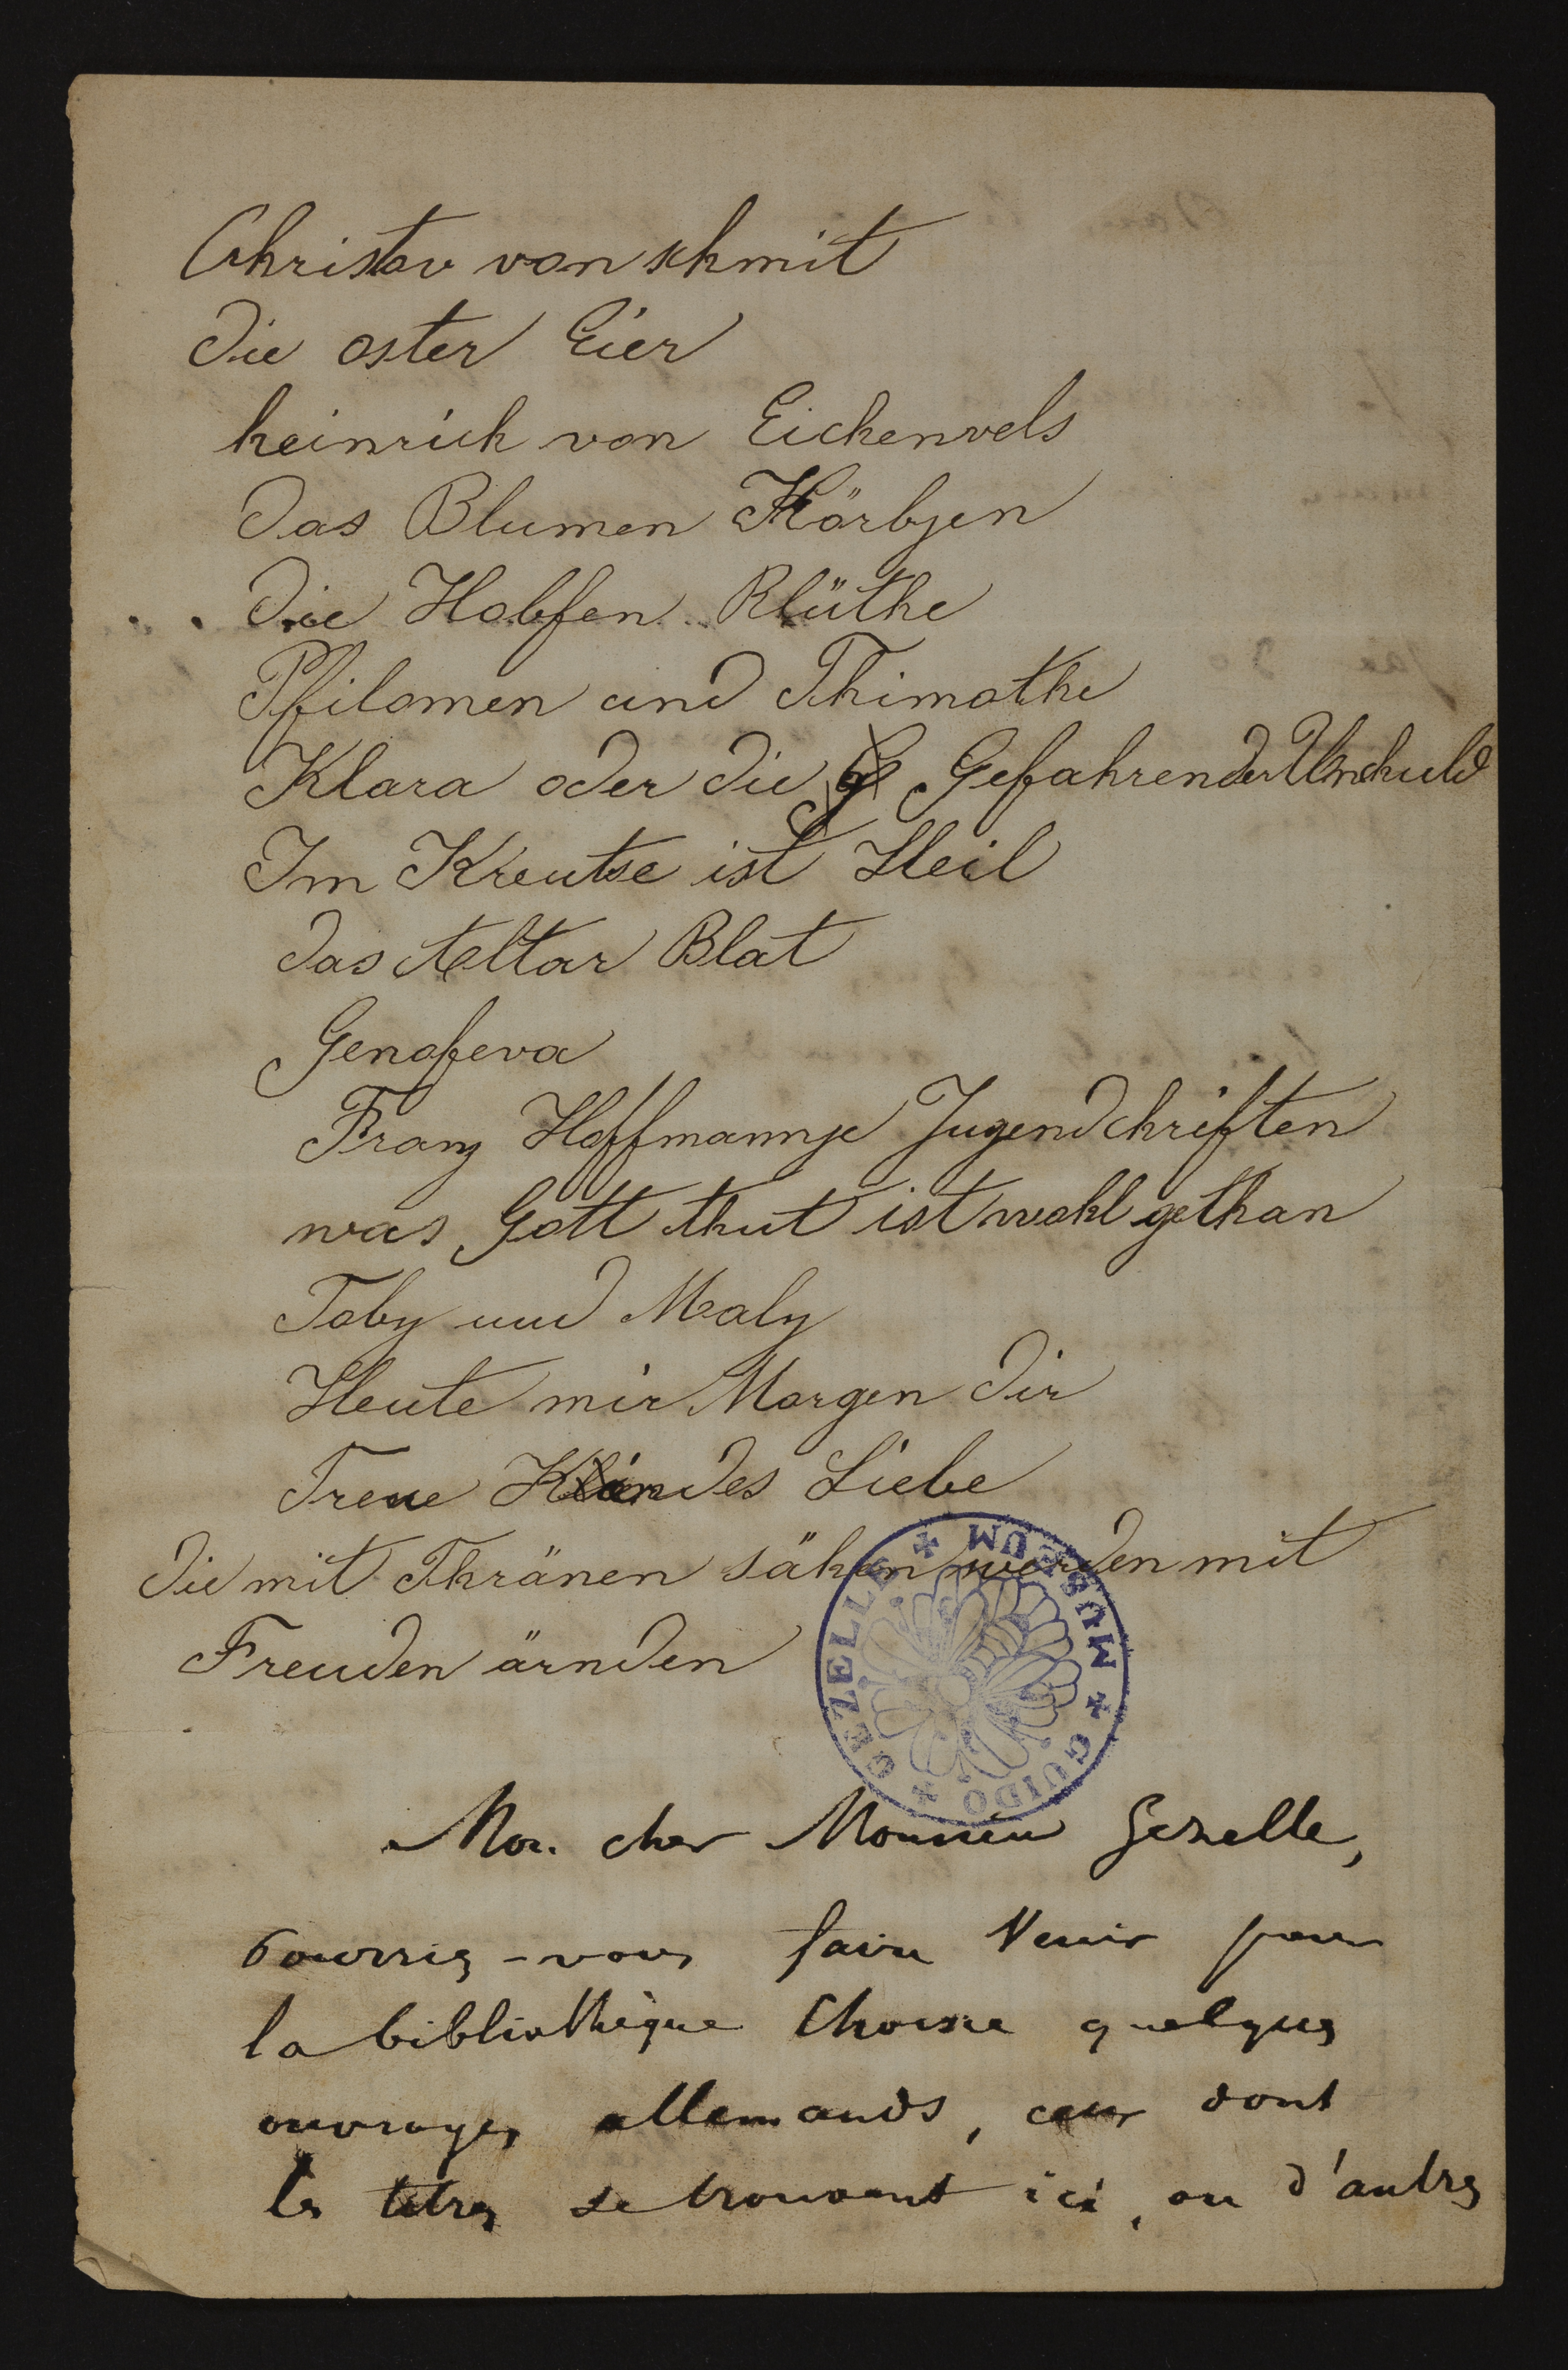 Christov von schmit
Die oster Eier
heinrich von Eichenvels
Das Blumen Körbjen
Die Hobfen Blüthe
Pfilomen und Thimothe
Klara oder die Gefahren der Unschuld
Im Kreutse ist Heil
Das Altar Blat
Genofeva
Franz Hoffmannje Jugendchriften
was Gott thut ist wohl gethan
Toby und Maly
Heute mir Morgen Dir
Treue Kindes Liebe
Die mit Thränen sähen werden mit
Freuden ärnden
GUIDO GEZELLE MUSEUM
Mon cher Monsieur Gezelle,
Pourriez-vous faire venir pour
la bibliothèque Choisie quelques
ouvrages allemands, ceux dont
les titres se trouvent ici, ou d'autres